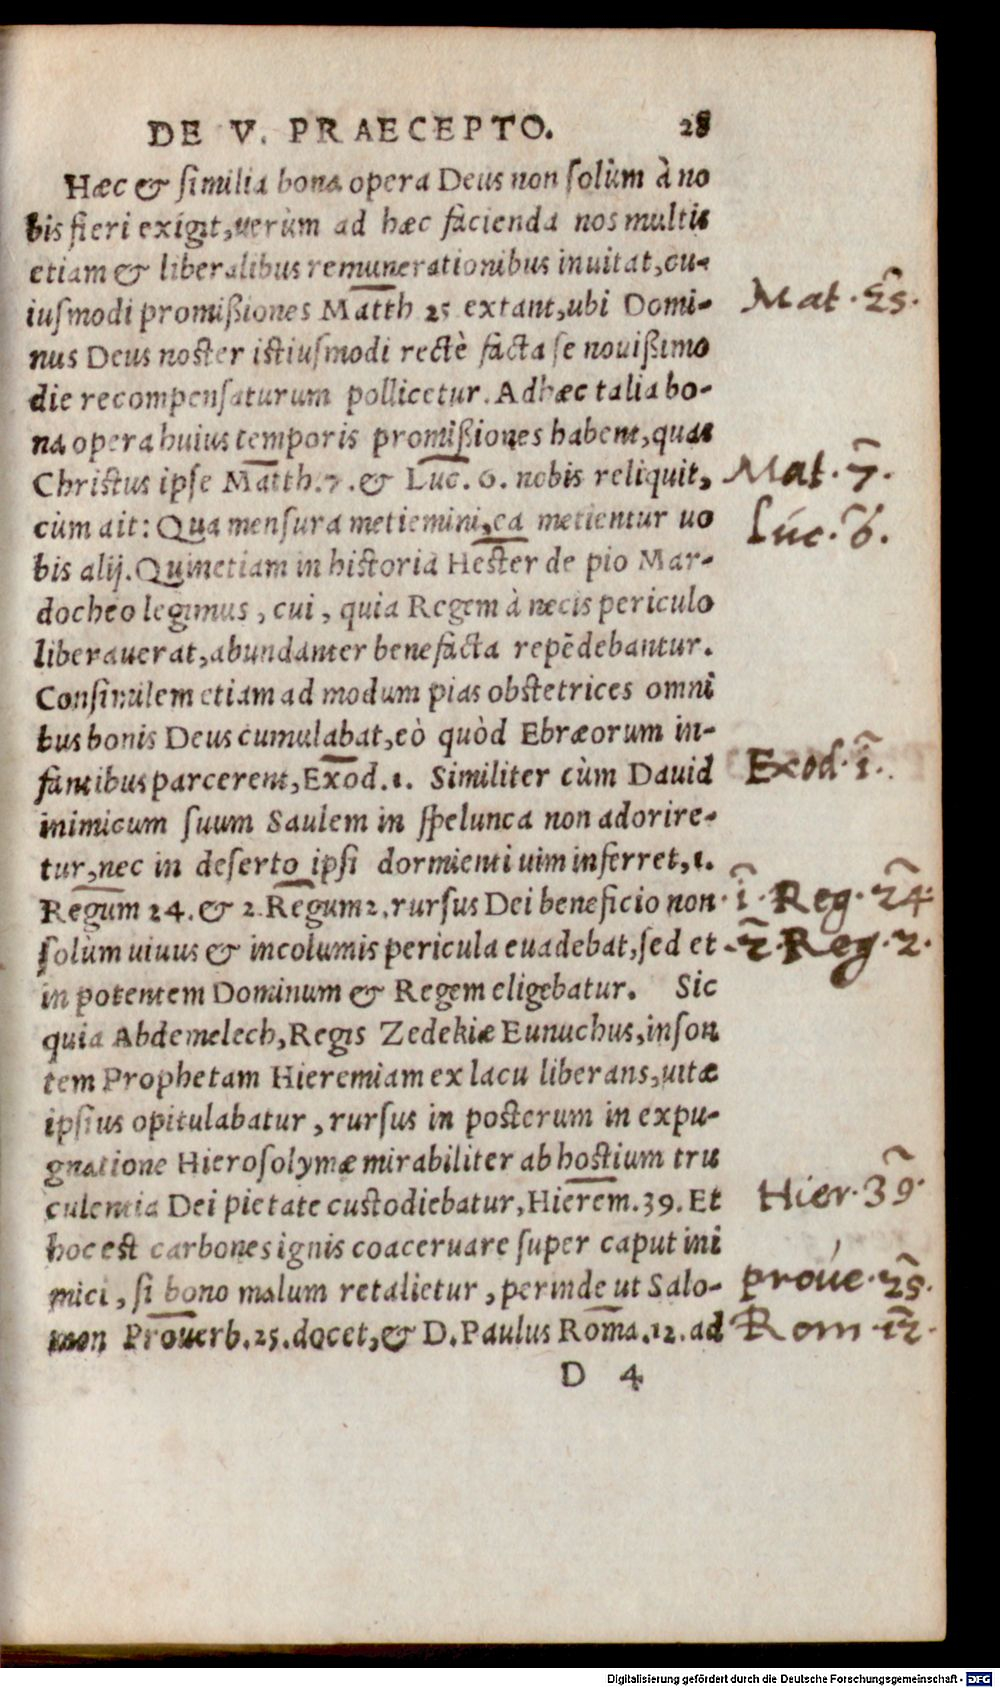 DE V. PRAECEPTO. 28
Hæc & ſimilia bona opera Deus non ſolùm à no
bis fieri exigit, uerùm ad hæc facienda nos multis
etiam & liberalibus remunerationibus inuitat, cu-
iuſmodi promißiones Matth 25 extant, ubi Domi-
Mat. 25.
nus Deus noſter iſtiuſmodi rectè facta ſe nouißimo
die recompenſaturum pollicetur. Adhæc talia bo-
na opera huius temporis promißiones habent, quas
Chriſtus ipſe Matth. 7. & Luc. 6. nobis reliquit,
Mat. 7.
cùm ait: Qua menſura metiemini, ea metientur uo
Luc. 6.
bis alij. Quinetiam in hiſtoria Heſter de pio Mar-
docheo legimus, cui, quia Regem à necis periculo
liberauerat, abundanter benefacta repēdebantur.
Conſimilem etiam ad modum pias obſtetrices omni
bus bonis Deus cumulabat, eò quòd Ebræorum in-
fantibus parcerent, Exod. 1. Similiter cùm Dauid
Exod. 1.
inimicum ſuum Saulem in ſpelunca non adorire-
tur, nec in deſerto ipſi dormienti uim inferret, 1.
Regum 24. & 2. Regum 2. rurſus Dei beneficio non
1. Reg. 24.
ſolùm uiuus & incolumis pericula euadebat, ſed et
2. Reg. 2.
in potentem Dominum & Regem eligebatur. Sic
quia Abdemelech, Regis Zedekiæ Eunuchus, inſon
tem Prophetam Hieremiam ex lacu liberans, uitæ
ipſius opitulabatur, rurſus in poſterum in expu-
gnatione Hieroſolymæ mirabiliter ab hoſtium tru
culentia Dei pietate cuſtodiebatur, Hierem. 39. Et
Hier. 39.
hoc eſt carbones ignis coaceruare ſuper caput ini
mici, ſi bono malum retalietur, perinde ut Salo-
proue. 25.
mon Prouerb. 25. docet, & D. Paulus Roma. 12. ad
Rom 12.
D 4
Digitalisierung gefördert durch die Deutsche Forschungsgemeinschaft - DFG